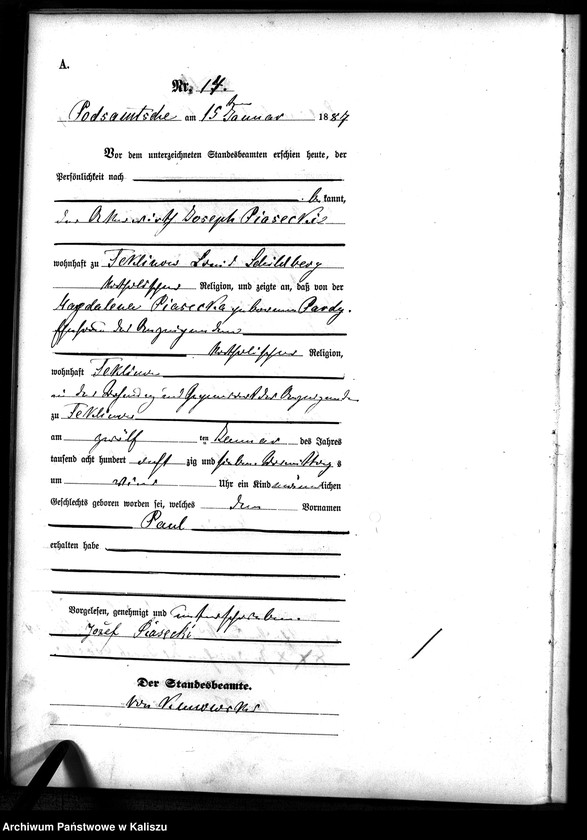 A.
Nr. 14.
Podsamtsche am 15ten Januar 1887
Vor dem unterzeichneten Standesbeamten erschien heute, der
Persönlichkeit nach
be kannt,
der Ackerwirth Joseph Piasecki
wohnhaft zu Teklinow Kreis Schildberg
katholischer Religion, und zeigte an, daß von der
Magdalena Piasecka geborenen Pardy.
Ehefrau des Anzeigenden
katholischer Religion,
wohnhaft Teklinow
in der Wohnung und Gegenwart des Anzeigenden
zu Teklinow
am zwölf ten Januar des Jahres
tausend acht hundert acht zig und sieben Vormittag s
um Uhr ein Kind männlichen
Geschlechts geboren worden sei, welches den Vornamen
Paul
erhalten habe
Vorgelesen, genehmigt und unterschrieben.
Józef Piasecki
Der Standesbeamte.
von
Archiwum Państwowe w Kaliszu